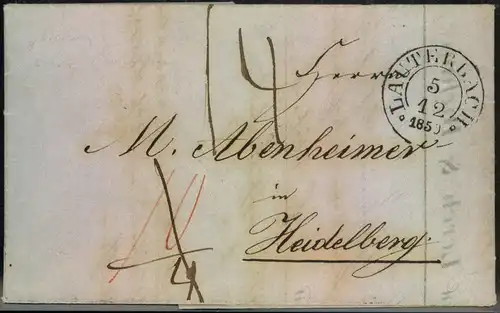 Herrn
LAUTERBACH
5
12
1850
M. Abenheimer
in
Heidelberg.